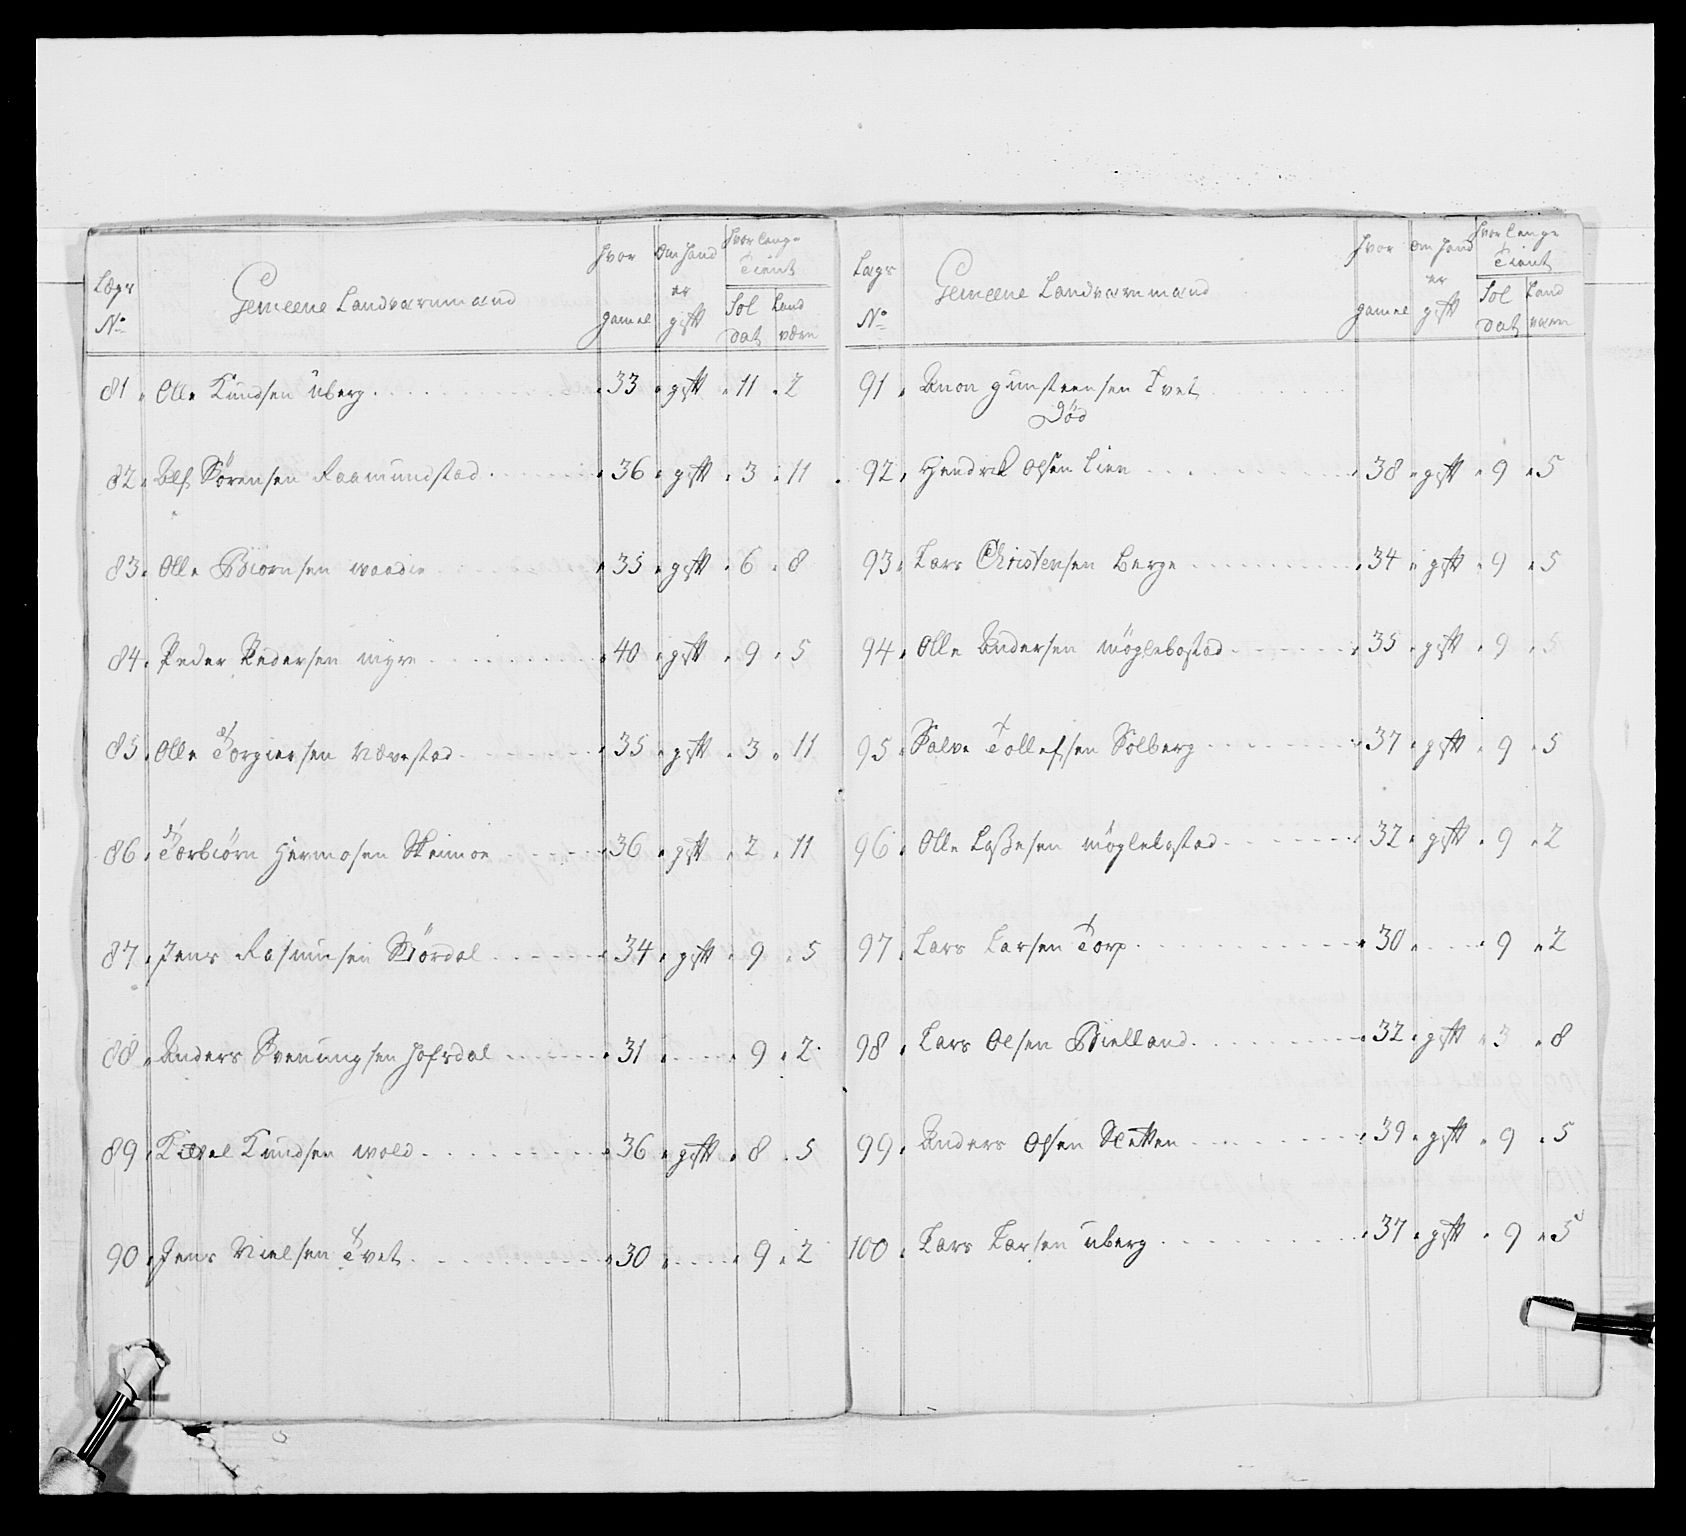 Lægs
No
Gemeene Landværnmænd
hvor
gamel
om hand
er
gift
hvor lenge
Tient
Sol
dat
Land
værn
81 Olle Knudsen uberg 33 gift 11 2
82 Alf Sörensen Raamundstad 36 gift 3 11
83 Olle Biörnsen 35 gift 6 8
84 Peder Pedersen myre 40 gift 9 5
85 Olle Torgiersen Nævestad 35 gift 3 11
86 Torbiörn Hermosen Skeimoe 36 gift 2 11
87 Jens Rasmusen 34 gift 9 5
88 Anders Svenungsen hofsdal 31 9 2
89 Knudsen wold 36 gift 8 5
90 Jens Nielsen Tvet 30 9 2
Lægs
No
Gemeene Landværnmænd
hvor
gamel
om hand
er
gift
hvor lenge
Tient
Sol
dat
Land
værn
91 Gunsteensen Tvet
Död
92 Hendrik Olsen Lien 38 gift 9 5
93 Lars Christensen Berge 34 gift 9 5
94 Olle Andersen möglebostad 35 gift 9 5
95 Salve Tollefsen Solberg 37 gift 9 5
96 Olle Laßesen möglebostad 32 gift 9 2
97 Lars Larsen Torp 30 9 2
98 Lars Olsen Bielland 32 gift 3 8
99 Anders Olsen Sletten 39 gift 9 5
100 Lars Larsen uberg 37 gift 9 5